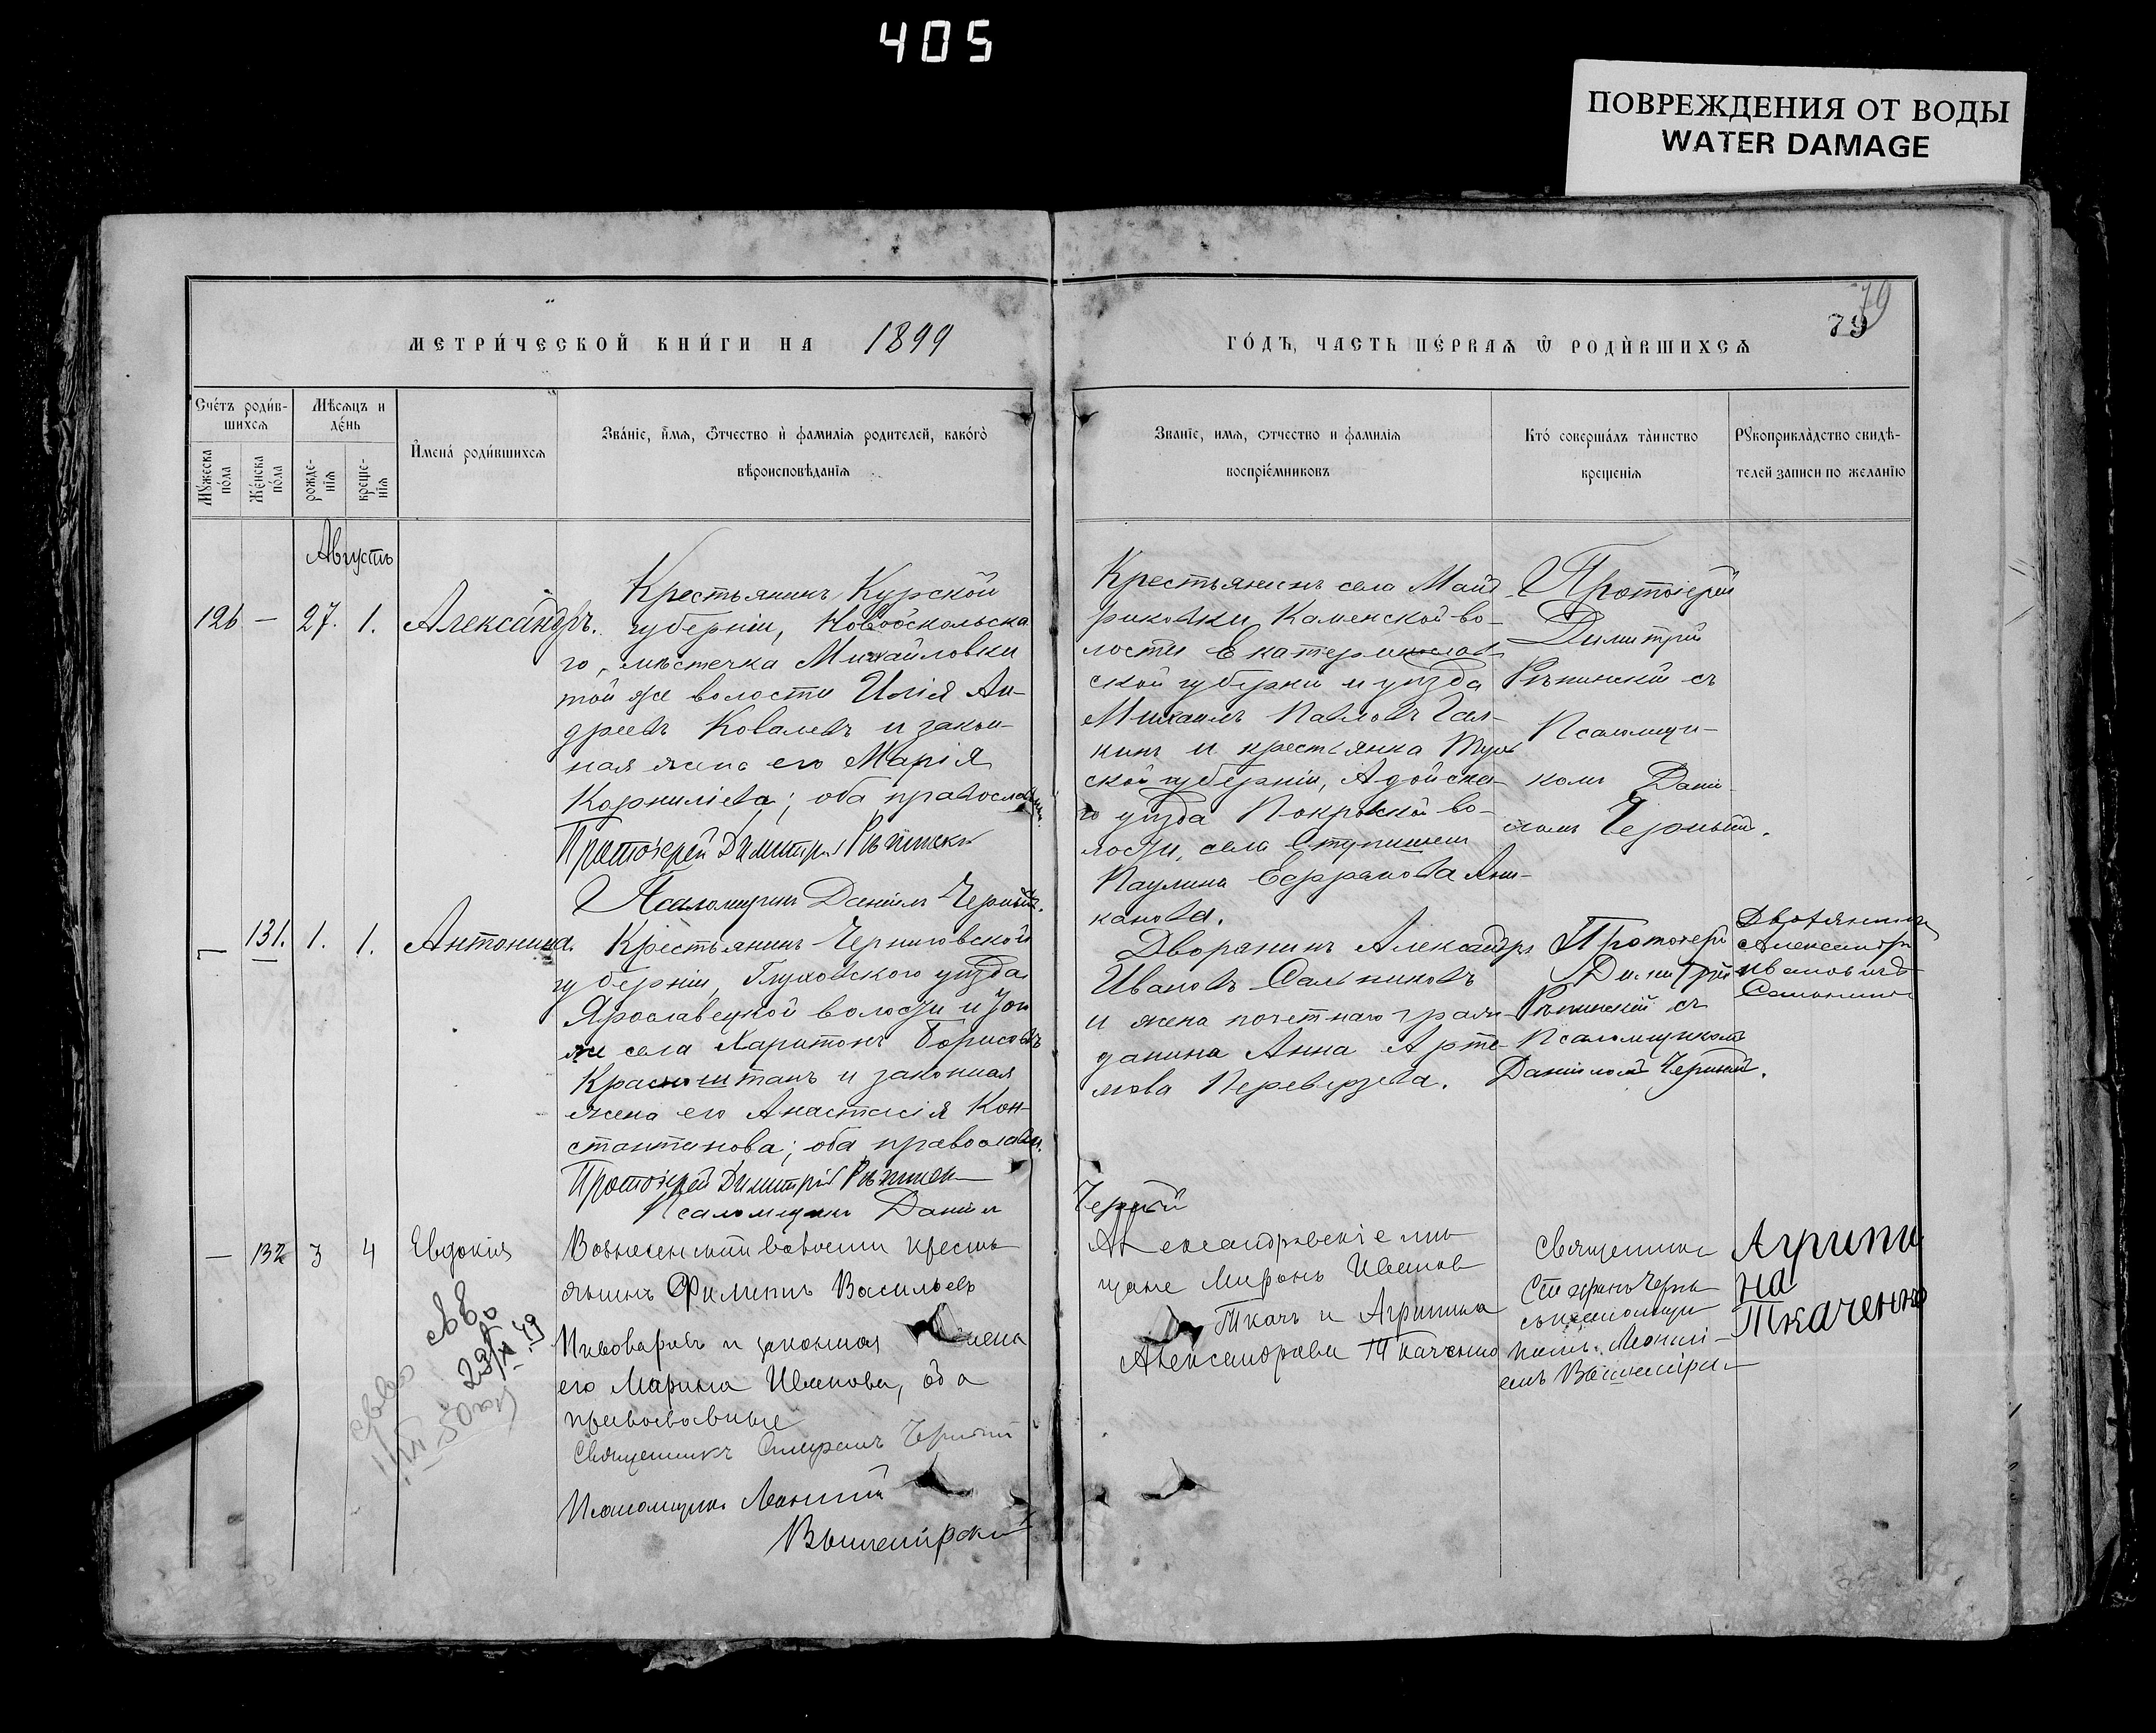 405
ПОВРЕЖДЕНИЯ ОТ ВОДЫ
WATER DAMAGE
79
79
МЕТРИ́ЧЕСКОЙ КНИ́ГИ НА 1899
ГО́ДЪ, ЧАСТЬ ПЕ́РВАѦ Ѿ РОДИ́ВШИХСѦ
Сче́тъ роди́в-
шихсѧ
Мꙋ́жеска
по́ла
Же́нска
по́ла
Мѣсѧцъ и
де́нь
рожде-
нїѧ
креще-
нїѧ
И҆мена́ роди́вшихсѧ
Зва́нїе, и҆́мѧ, о҆́тчество и҆ фами́лїѧ родителей, како́гѡ
вѣроисповѣ́данїѧ
Званїе, имѧ, ѻтчество и фамилїѧ
воспрїе́мниковъ
Кто́ соверша́лъ та́инство
крещенїѧ
Рꙋкоприкла́дство свидѣ-
телей записи по желанїю
Августъ
126 — 27. 1. Александръ.
Крестьянинъ Курской
губерніи, Новооскольска
го, мѣстечка Михайловки
той же волости Илія Ан-
дреевъ Ковалевъ и закон-
ная жена его Марія
Корниліева; оба православн.
Протоіерей Димитрій Рѣпинскій
Псаломщикъ Даніилъ Черный.
Крестьянинъ села Май
риковки Каменской во-
лости Екатеринослав
ской губерніи и уѣзда
Михаилъ Павловъ Гал-
кинъ и крестьянка
ской губерніи,
го уѣзда Покровской во-
лости, села
Паулина
канова.
Протоіерей
Димитрій
Рѣпинскій съ
Псаломщи-
комъ Дані-
иломъ Чернымъ.
— 131. 1. 1. Антонина.
Крестьянинъ Черниговской
губерніи, Глуховского уѣзда
Ярославецкой волости и того
же села Харитонъ Борисовъ
Красноштанъ и законная
жена его Анастасія Кон-
стантинова; оба православн.
Протоіерей Димитрій Рѣпинскій
Псаломщикъ Даніилъ
Черный
Дворянинъ Александръ
Ивановъ Сальниковъ
и жена почетнаго граж-
данина Анна Арте-
мова Переверзева.
Протоіерей
Димитрій
Рѣпинскій съ
Псаломщикомъ
Даніиломъ Чернымъ.
Дворянинъ
Александръ
Ивановичъ
— 132 3 4 Евдокія
Вознесенской волости кресть
янинъ Филиппъ Васильевъ
Пивоваровъ и законная жена
его Марина Иванова, оба
православные
Священникъ Стефанъ Черный
Псаломщикъ Леонтій
Вышемірскій
Александровскіе мѣ-
щане Миронъ Ивановъ
Ткачъ и Агрипина
Александрова Ткаченко
Священникъ
Стефанъ Черный
съ псаломщи-
комъ Леонті-
емъ Вышемірск
Агрипи
на
Ткаченко